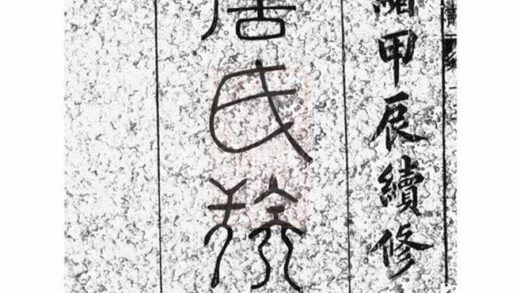 緒甲辰續修
氏族